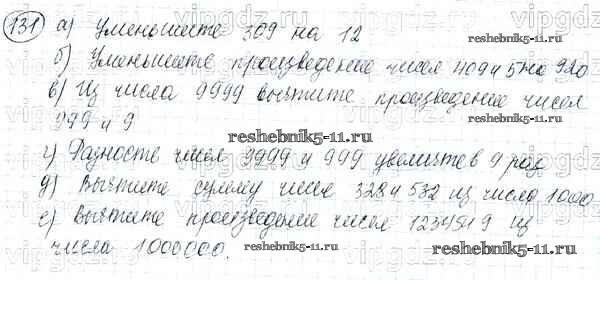 131 а) Уменьшите 309 на 12
б) Уменьшите произведение чисел 409 и 5 на 920
в) Из числа 9999 вычтите произведение чисел
999 и 9
г) Разность чисел 9999 и 999 увеличьте в 9 раз
д) Вычтите сумму чисел 328 и 532 из числа 1000
е) Вычтите произведение чисел 12345 и 9 из
числа 1000000.
reshebnik5-11.ru
reshebnik5-11.ru
reshebnik5-11.ru
reshebnik5-11.ru